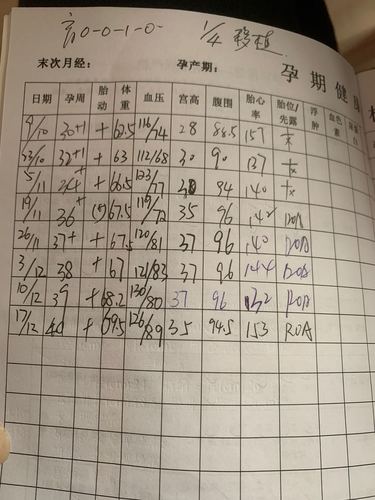 0-0-1-0- 1/4 移植
末次月经： 孕产期： 孕期健
日期 孕周 胎动 体重 血压 宫高 腹围 胎心率 胎位/先露 浮肿 血色素
/10 30+1 + 62.5 116/74 28 88.5 157
/10 32+1 + 63 112/68 30 90 137
5/11 + 66.5 123/77 94 140
19/11 36+ (+) 67.5 119/72 35 96 142 ROA
26/11 37+ + 67.5 120/81 37 96 140 ROA
3/12 38 + 67 121/83 37 96 144 ROA
10/12 39 + 68.2 130/80 37 96 132 ROA
17/12 40 + 69.5 126/89 35 94.5 153 ROA